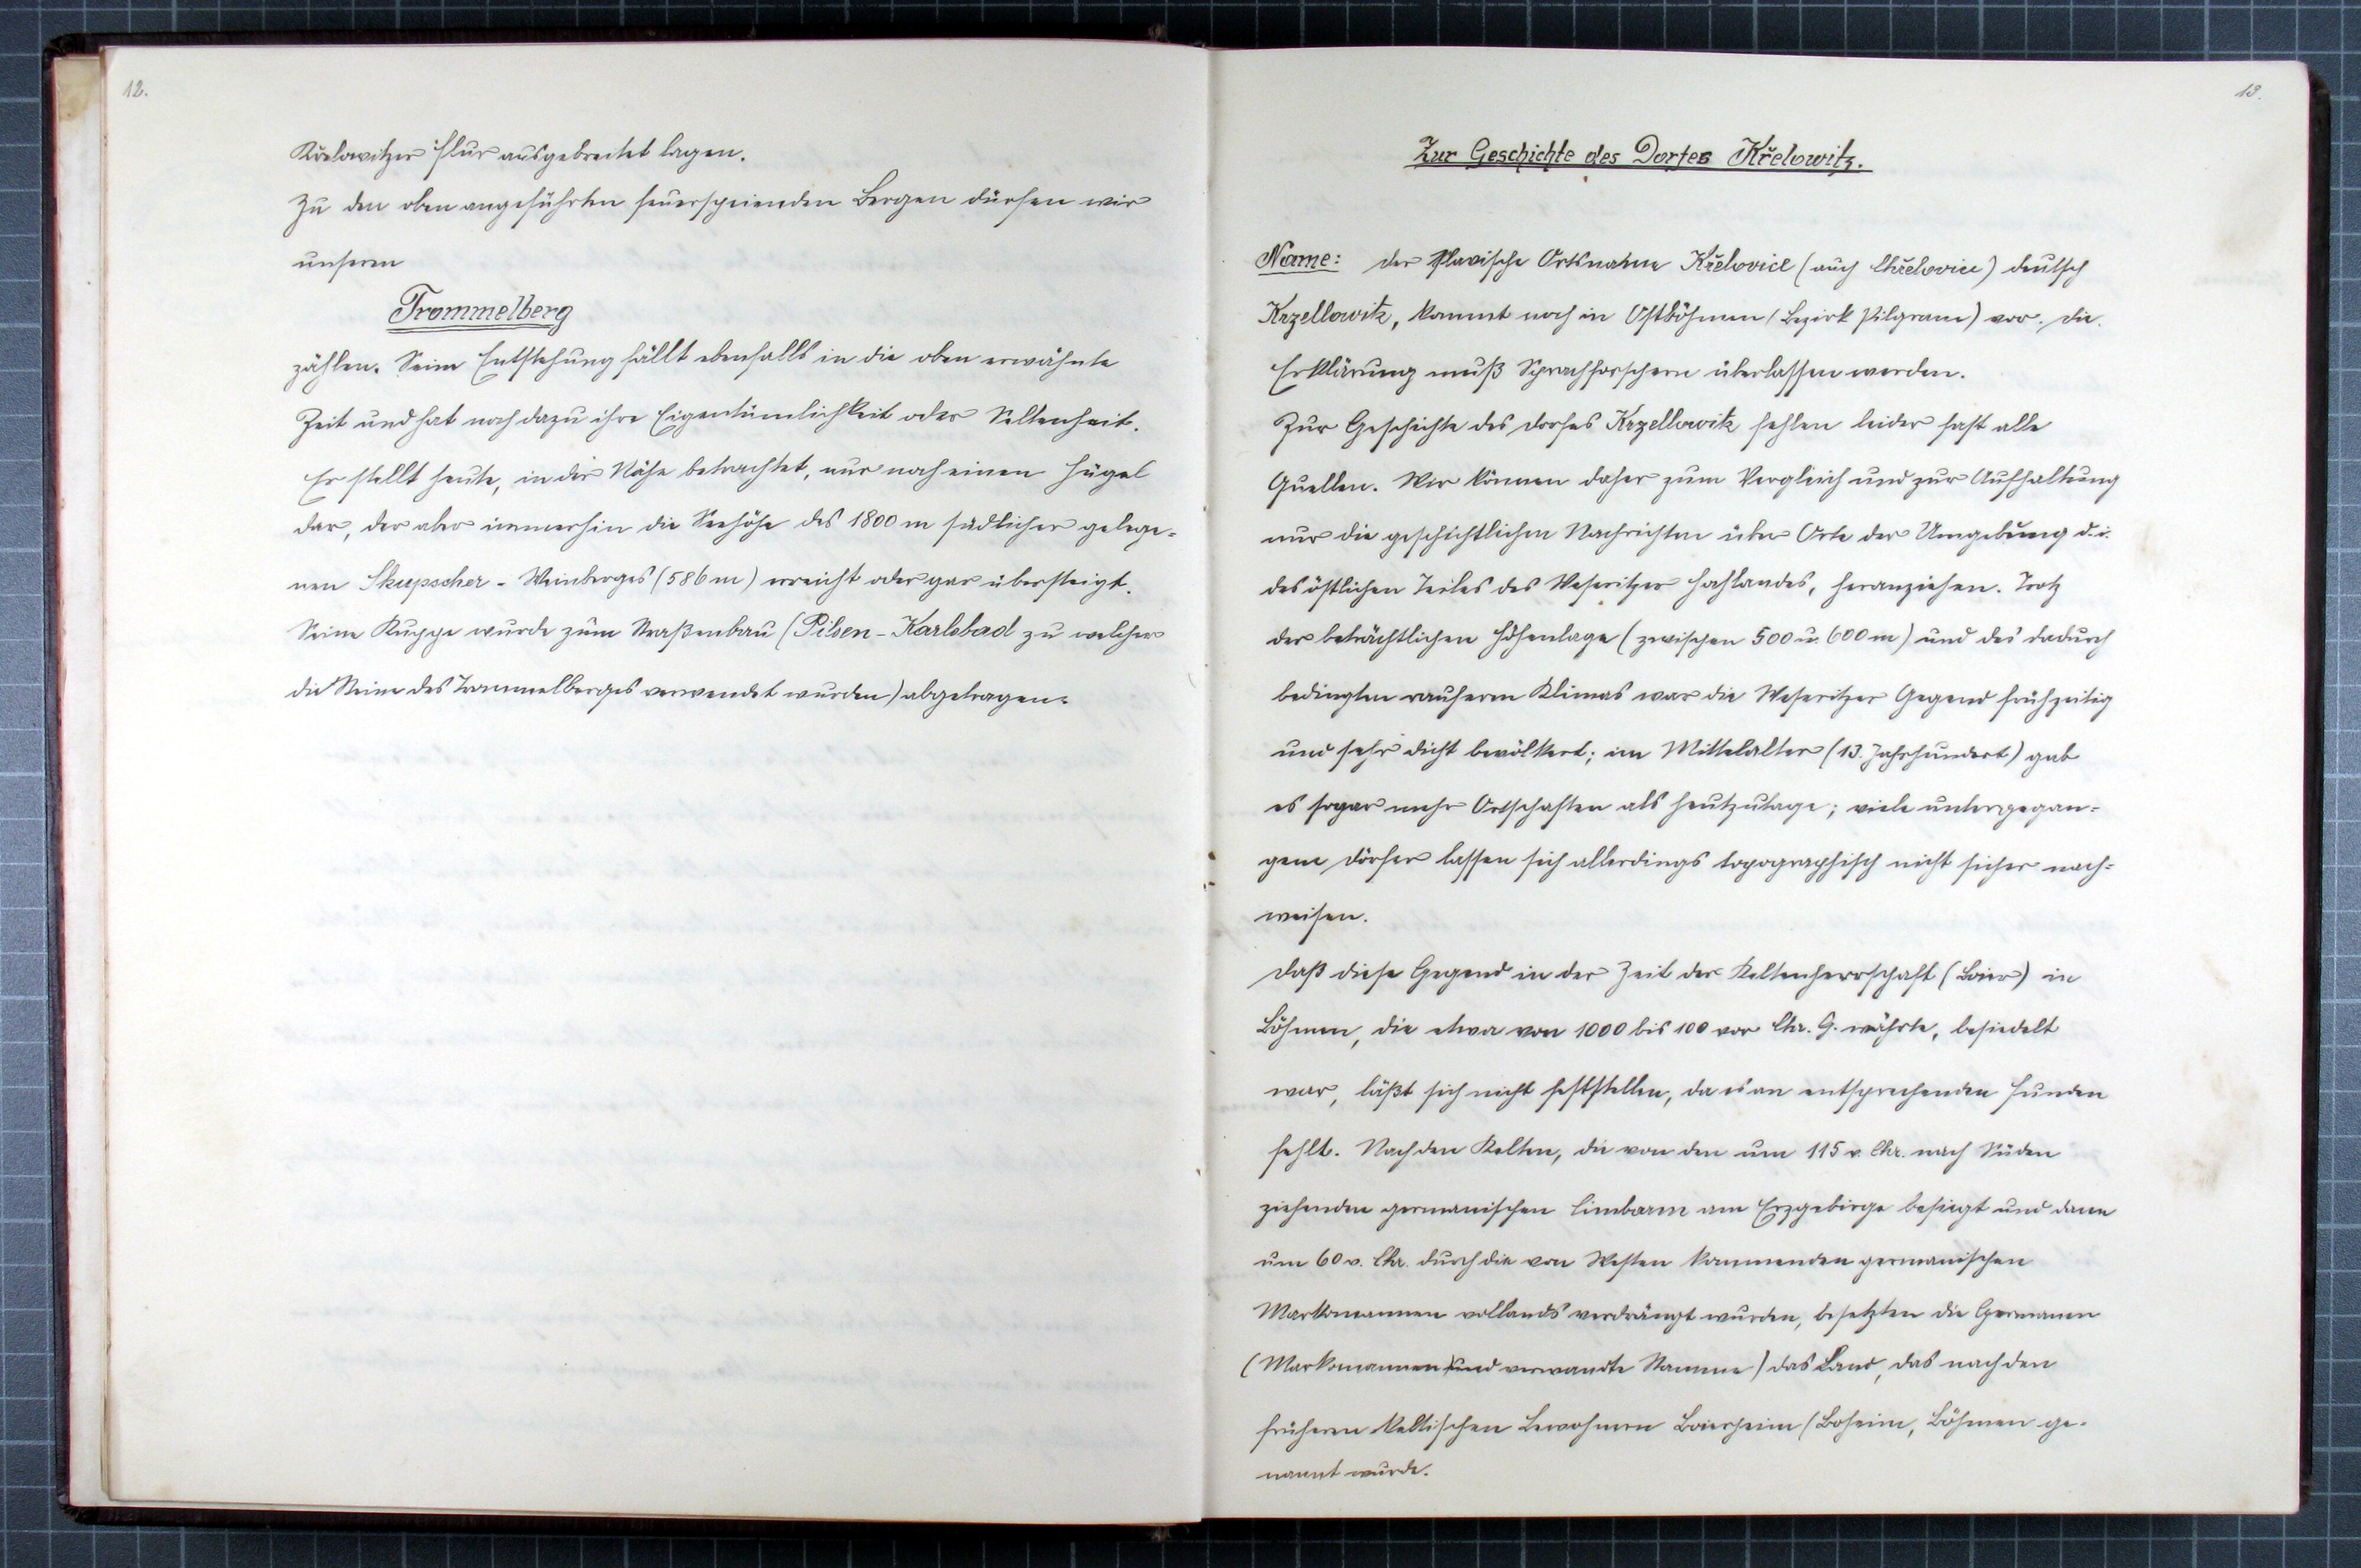 12.
Křelowitzer Flur ausgebreitet lagen.
Zu den oben angeführten feuerspeienden Bergen dürfen wir
unseren
Trommelberg
zählen. Seine Entstehung fällt ebenfalls in die oben erwähnte
Zeit und hat noch dazu ihre Eigentümlichkeit oder Seltenheit.
Er stellt heute, in der Nähe betrachtet, nur noch einen Hügel
dar, der aber immerhin die Seehöhe des 1800 m südlicher gelege-
nen Skupscher - Weinberges (586 m) erreicht oder gar übersteigt.
Seine Kuppe wurde zum Straßenbau (Pilsen - Karlsbad zu welcher
die Steine des Trommelberges verwendet wurden) abgetragen.
13.
Zur Geschichte des Dorfes Křelowitz.
Name: Der slavische Ortsname Křelovice (auch Chřelovice) deutsch
Krzellowitz, kommt noch in Ostböhmen (Bezirk Pilgram) vor. Die
Erklärung muß Sprachforschern überlassen werden.
Zur Geschichte des Dorfes Krzellowitz fehlen leider fast alle
Quellen. Wir können daher zum Vergleich und zur Aufhaltung
nur die geschichtlichen Nachrichten über Orte der Umgebung d. i.
des östlichen Teiles des Weseritzer Hochlandes, heranziehen. Trotz
der beträchtlichen Höhenlage (zwischen 500 u. 600 m) und des dadurch
bedingten rauheren Klimas war die Weseritzer Gegend frühzeitig
und sehr dicht bevölkert; im Mittelalter (13. Jahrhundert) gab
es sogar mehr Ortschaften als heutzutage; viele untergegan-
gene Dörfer lassen sich allerdings topographisch nicht sicher nach-
weisen.
Daß diese Gegend in der Zeit der Keltenherrschaft (Boier) in
Böhmen, die etwa von 1000 bis 100 vor Chr. G. währte, besiedelt
war, läßt sich nicht feststellen, da es an entsprechenden Funden
fehlt. Nach den Kelten, die von den um 115 v. Chr. nach Süden
ziehenden germanischen Cimbarn am Erzgebirge besiegt und dann
um 60 v. Chr. durch die von Westen kommenden germanischen
Markomannen vollends verdrängt wurden, besetzten die Germanen
(Markomannen und verwandte Stämme) das Land, das nach den
früheren keltischen Bewohnern Boierheim (Boheim, Böhmen ge-
nannt wurde.